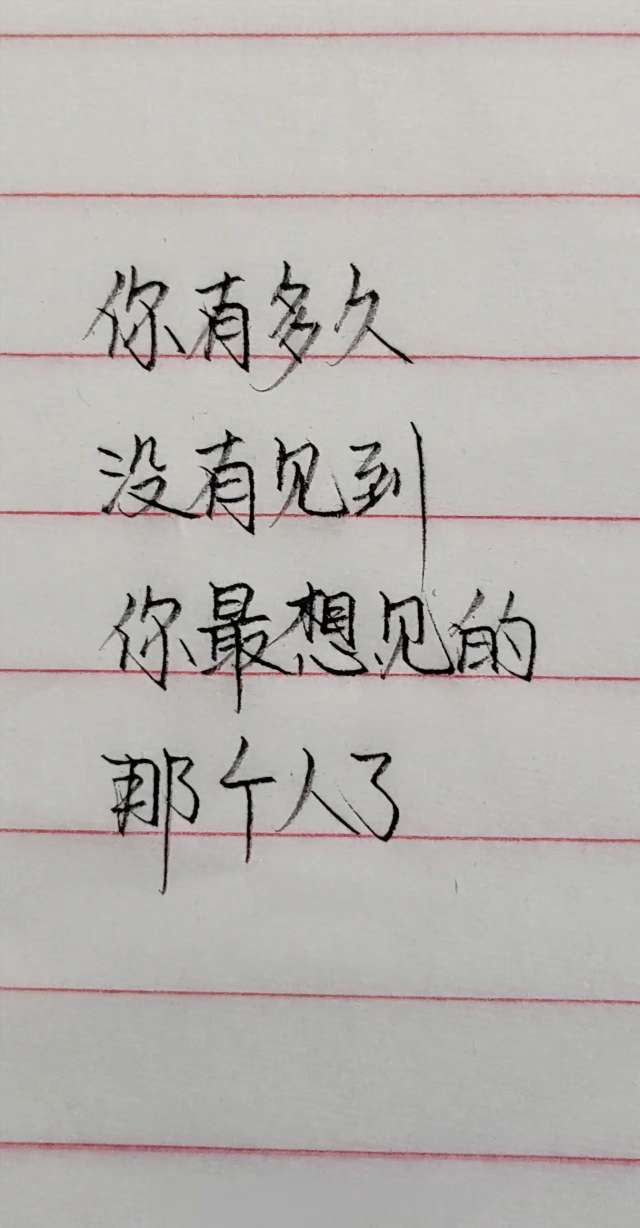 你有多久
没有见到
你最想见的
那个人了